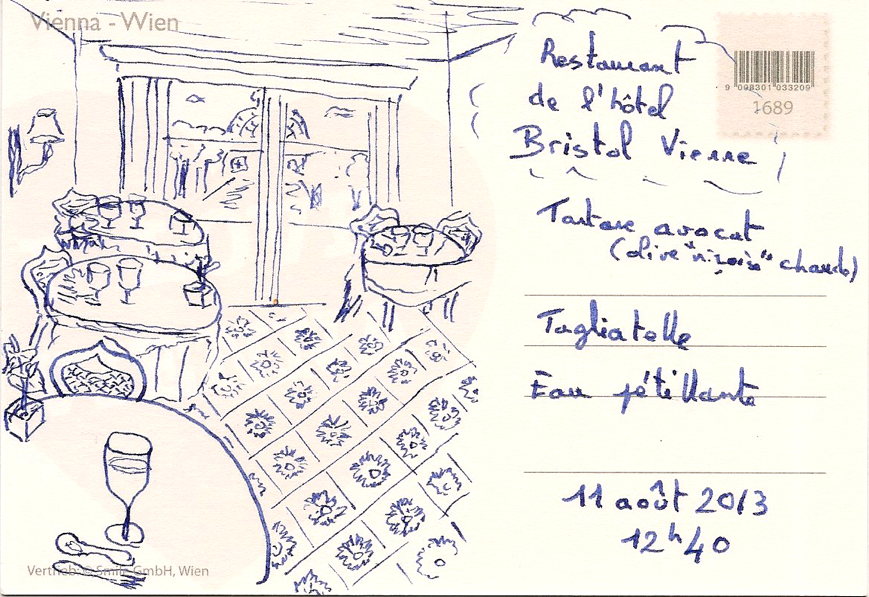 Vienna - Wien
9 008301 033209
1689
Restaurant
de l'hôtel
Bristol Vienne
Tartare avocat
(olive "niçoise" chaude)
Tagliatelle
Eau pétillante
11 août 2013
12h40
Vertrieb: © Smile GmbH, Wien